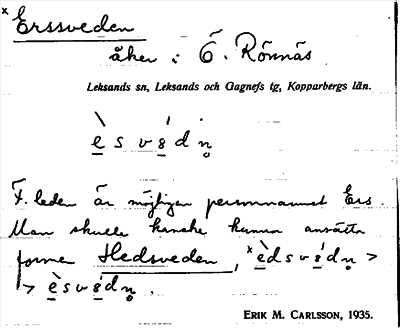 × Erssveden
åker i Ö. Rönnäs
Leksands sn, Leksands och Gagnefs tg, Kopparbergs län.
è s v 8́ d n̥
F. leden är möjligen personnamnet Ers.
Man skulle kanske kunna ansätta
formen Hedsveden, ×è d s v 8́ d n̥ >
> è s v 8́ d n̥.
ERIK M. CARLSSON, 1935.